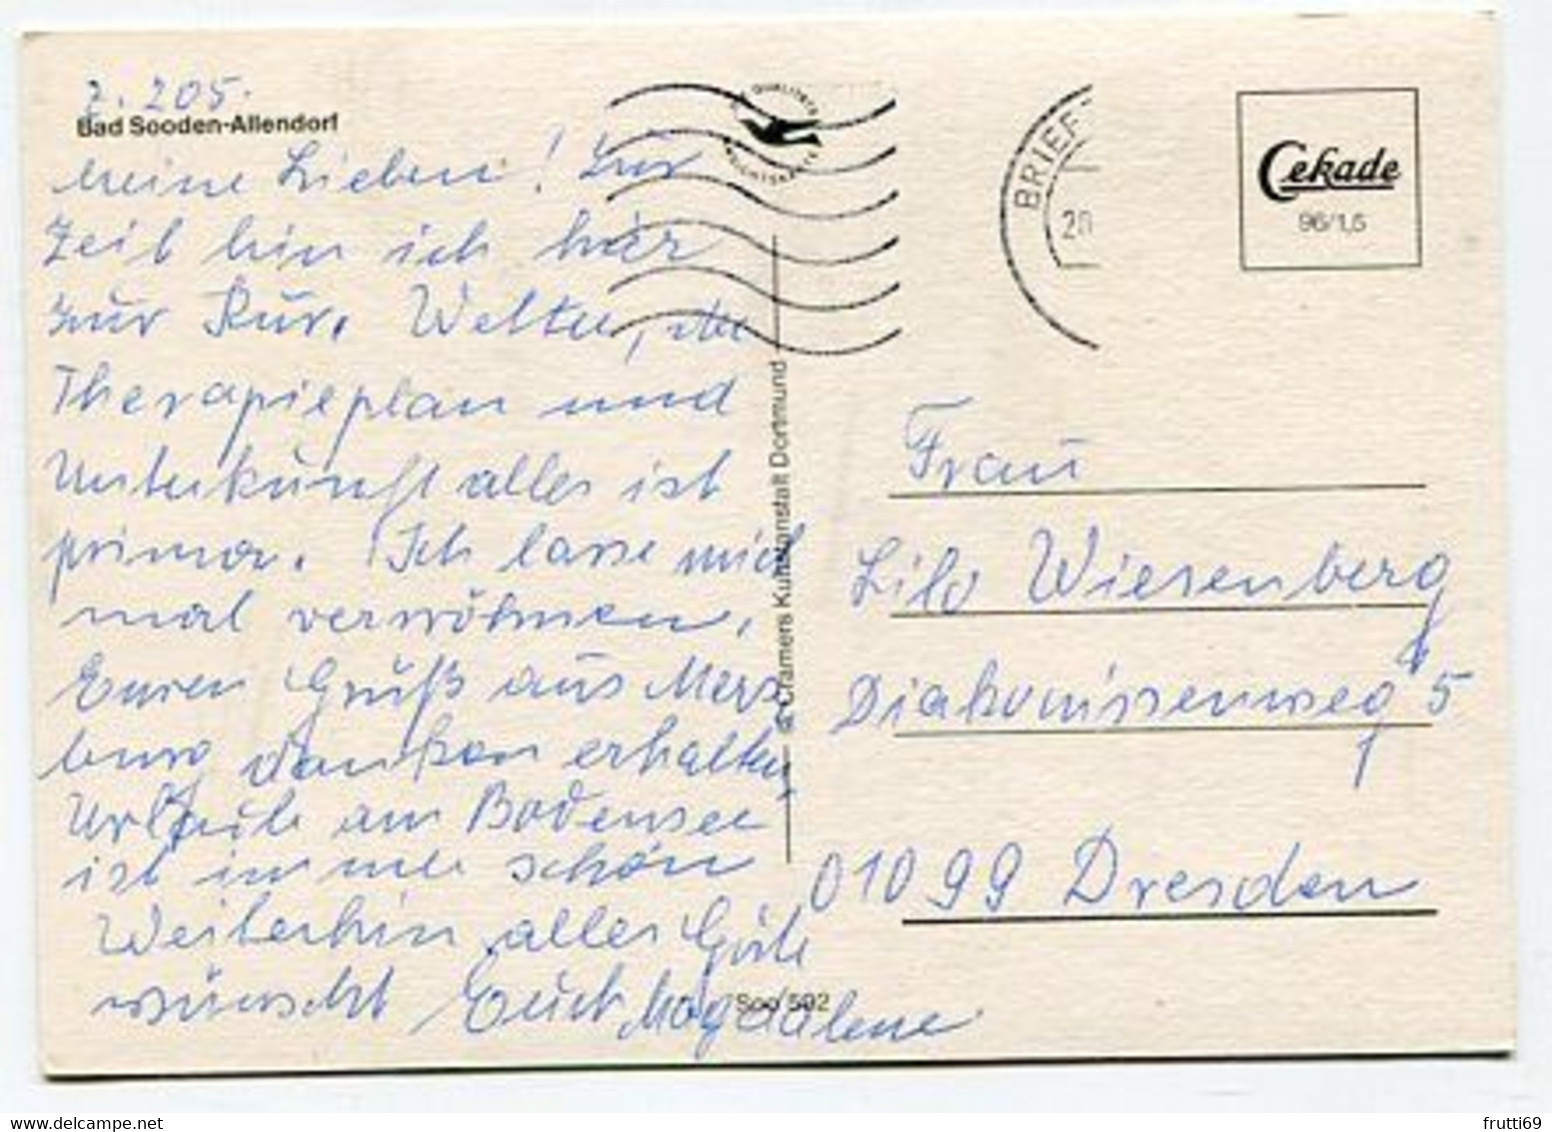 Z. 205.
Bad Sooden-Allendorf
meine Lieben! Zur
Zeit bin ich hier
zur Kur. Wetter, der
Therapieplan und
Unterkunft alles ist
prima. Ich lasse mich
mal verwöhnen,
Euren Gruß aus Mers
burg dankend erhalten,
Urlaub am Bodensee
ist immer schön
Weiterhin alles Gute
wünscht Euch Magdalene
Soo 592
© Cramers Kunstanstalt Dortmund
BRIEF
20
Cekade
96/1,5
Frau
Lilo Wiesenberg
Diakonissenweg 5
01099 Dresden
frutti69